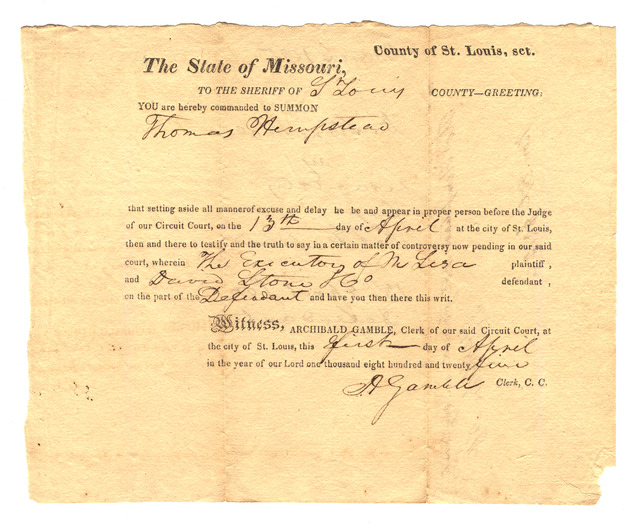 County of St. Louis, sct.
The State of Missouri,
TO THE SHERIFF OF St Louis COUNTY—GREETING:
YOU are hereby commanded to SUMMON
Thomas Hempstead
that setting aside all manner of excuse and delay he be and appear in proper person before the Judge
of our Circuit Court, on the 13th day of April at the city of St. Louis,
then and there to testify and the truth to say in a certain matter of controversy now pending in our said
court, wherein The Executors of M Lisa plaintiff,
and David Stone & Co defendant,
on the part of the Defendant and have you then there this writ.
Witness, ARCHIBALD GAMBLE, Clerk of our said Circuit Court, at
the city of St. Louis, this first day of April
in the year of our Lord one thousand eight hundred and twenty five
A Gamble Clerk, C. C.